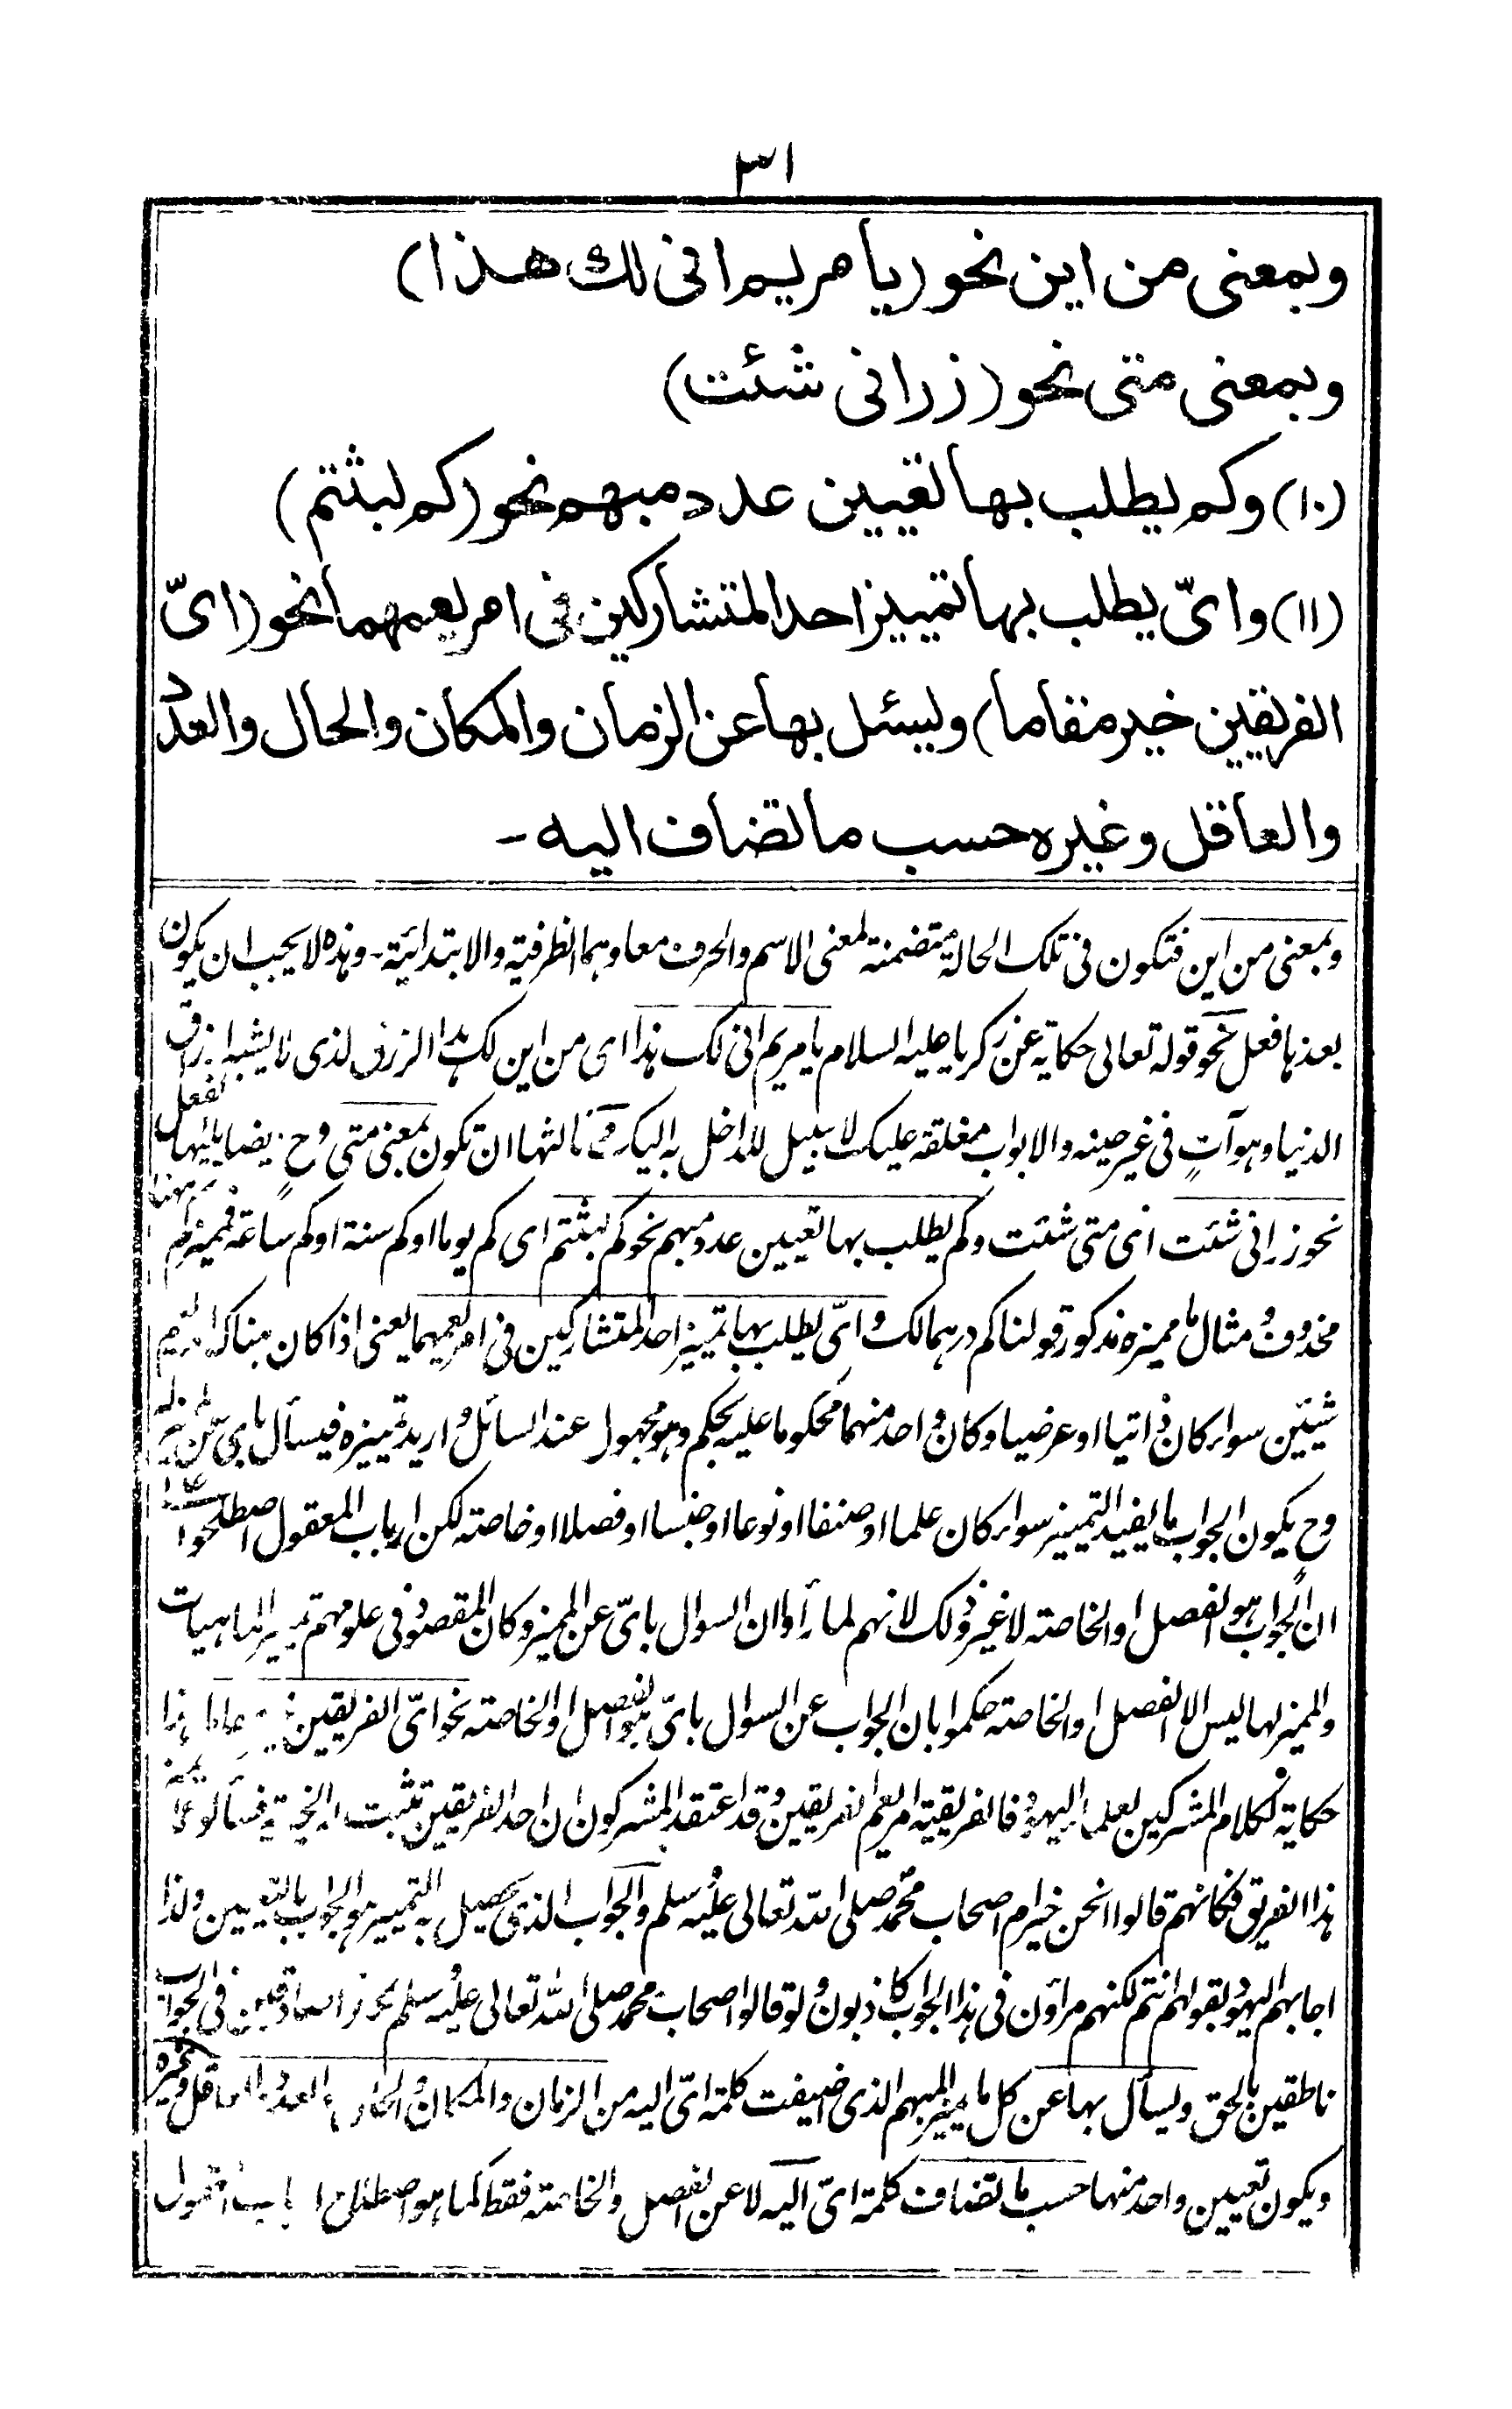 ٣١
وبمعنى من اين نحو (يا مريم انى لك هذا)
وبمعنى متى نحو (زرانى شئت)
(١٠) وكم يطلب بها تعيين عدد مبهم نحو (كم لبثتم)
(١١) واىّ يطلب بها تمييز احد المتشاركين فى امر يعمهما نحو (اىّ
الفريقين خير مقاما) ويسئل بها عن الزمان والمكان والحال والعدد
والعاقل وغيره حسب ما تضاف اليه -
وبمعنى من اين فتكون فى تلك الحالة متضمنة لمعنى الاسم والحرف معا وهما الظرفية والابتدائية - وهذه لا يجب ان يكون
بعدها فعل نحو قوله تعالى حكاية عن زكريا عليه السلام يا مريم انى لك هذا اى من اين لك هذا الرزق الذى لا يشبه ارزاق
الدنيا وهو آتٍ فى غير حينه والابواب مغلقة عليك لا سبيل للداخل به اليك وثالثها ان تكون بمعنى متى وح ايضا يليها الفعل
نحو زرانى شئت اى متى شئت وكم يطلب بها تعيين عدد مبهم نحو كم لبثتم اى كم يوما او كم سنة او كم ساعة فمميز كم ههنا
محذوف ومثال ما مميزه مذكور قولنا كم درهما لك واىّ يطلب بها تمييز احد المتشاركين فى امر يعمهما يعنى اذا كان هناك امر يعم
شيئين سواء كان ذاتيا او عرضيا وكان واحد منهما محكوما عليه بحكم وهو مجهول عند السائل واريد تمييزه فيسأل باىّ عن
وح يكون الجواب ما يفيد التمييز سواء كان علما او صنفا او نوعا او جنسا او فصلا او خاصة لكن ارباب المعقول اصطلحوا على
ان الجواب هو الفصل او الخاصة لا غير وذلك لانهم لما رأوا ان السوال باىّ عن المميز وكان المقصود فى علومهم تمييز الماهيات
والمميز لها ليس الا الفصل او الخاصة حكموا بان الجواب عن السوال باىّ هو الفصل او الخاصة نحو اىّ الفريقين خير مقاما هذا
حكاية لكلام المشركين لعلماء اليهود فالفريقية امر يعم الفريقين وقد اعتقد المشركون ان احد الفريقين تثبت له الخيرية فسألوا
هذا الفريق فكانهم قالوا انحن خير ام اصحاب محمد صلى الله تعالى عليه سلم والجواب الذى يحصل به التمييز هو الجواب بالتعيين ولذا
اجابهم اليهود بقولهم انتم لكنهم مراؤن فى هذا الجواب كاذبون ولو قالوا اصحاب محمد صلى الله تعالى عليه سلم صادقين فى الجواب
ناطقين بالحق ويسأل بها عن كل ما يميز المبهم الذى اضيفت كلمة اىّ اليه من الزمان والمكان والحال والعدد والعاقل وغيره
ويكون تعيين واحد منها حسب ما تضاف كلمة اىّ اليه لا عن الفصل والخاصة فقط كما هو اصطلاح